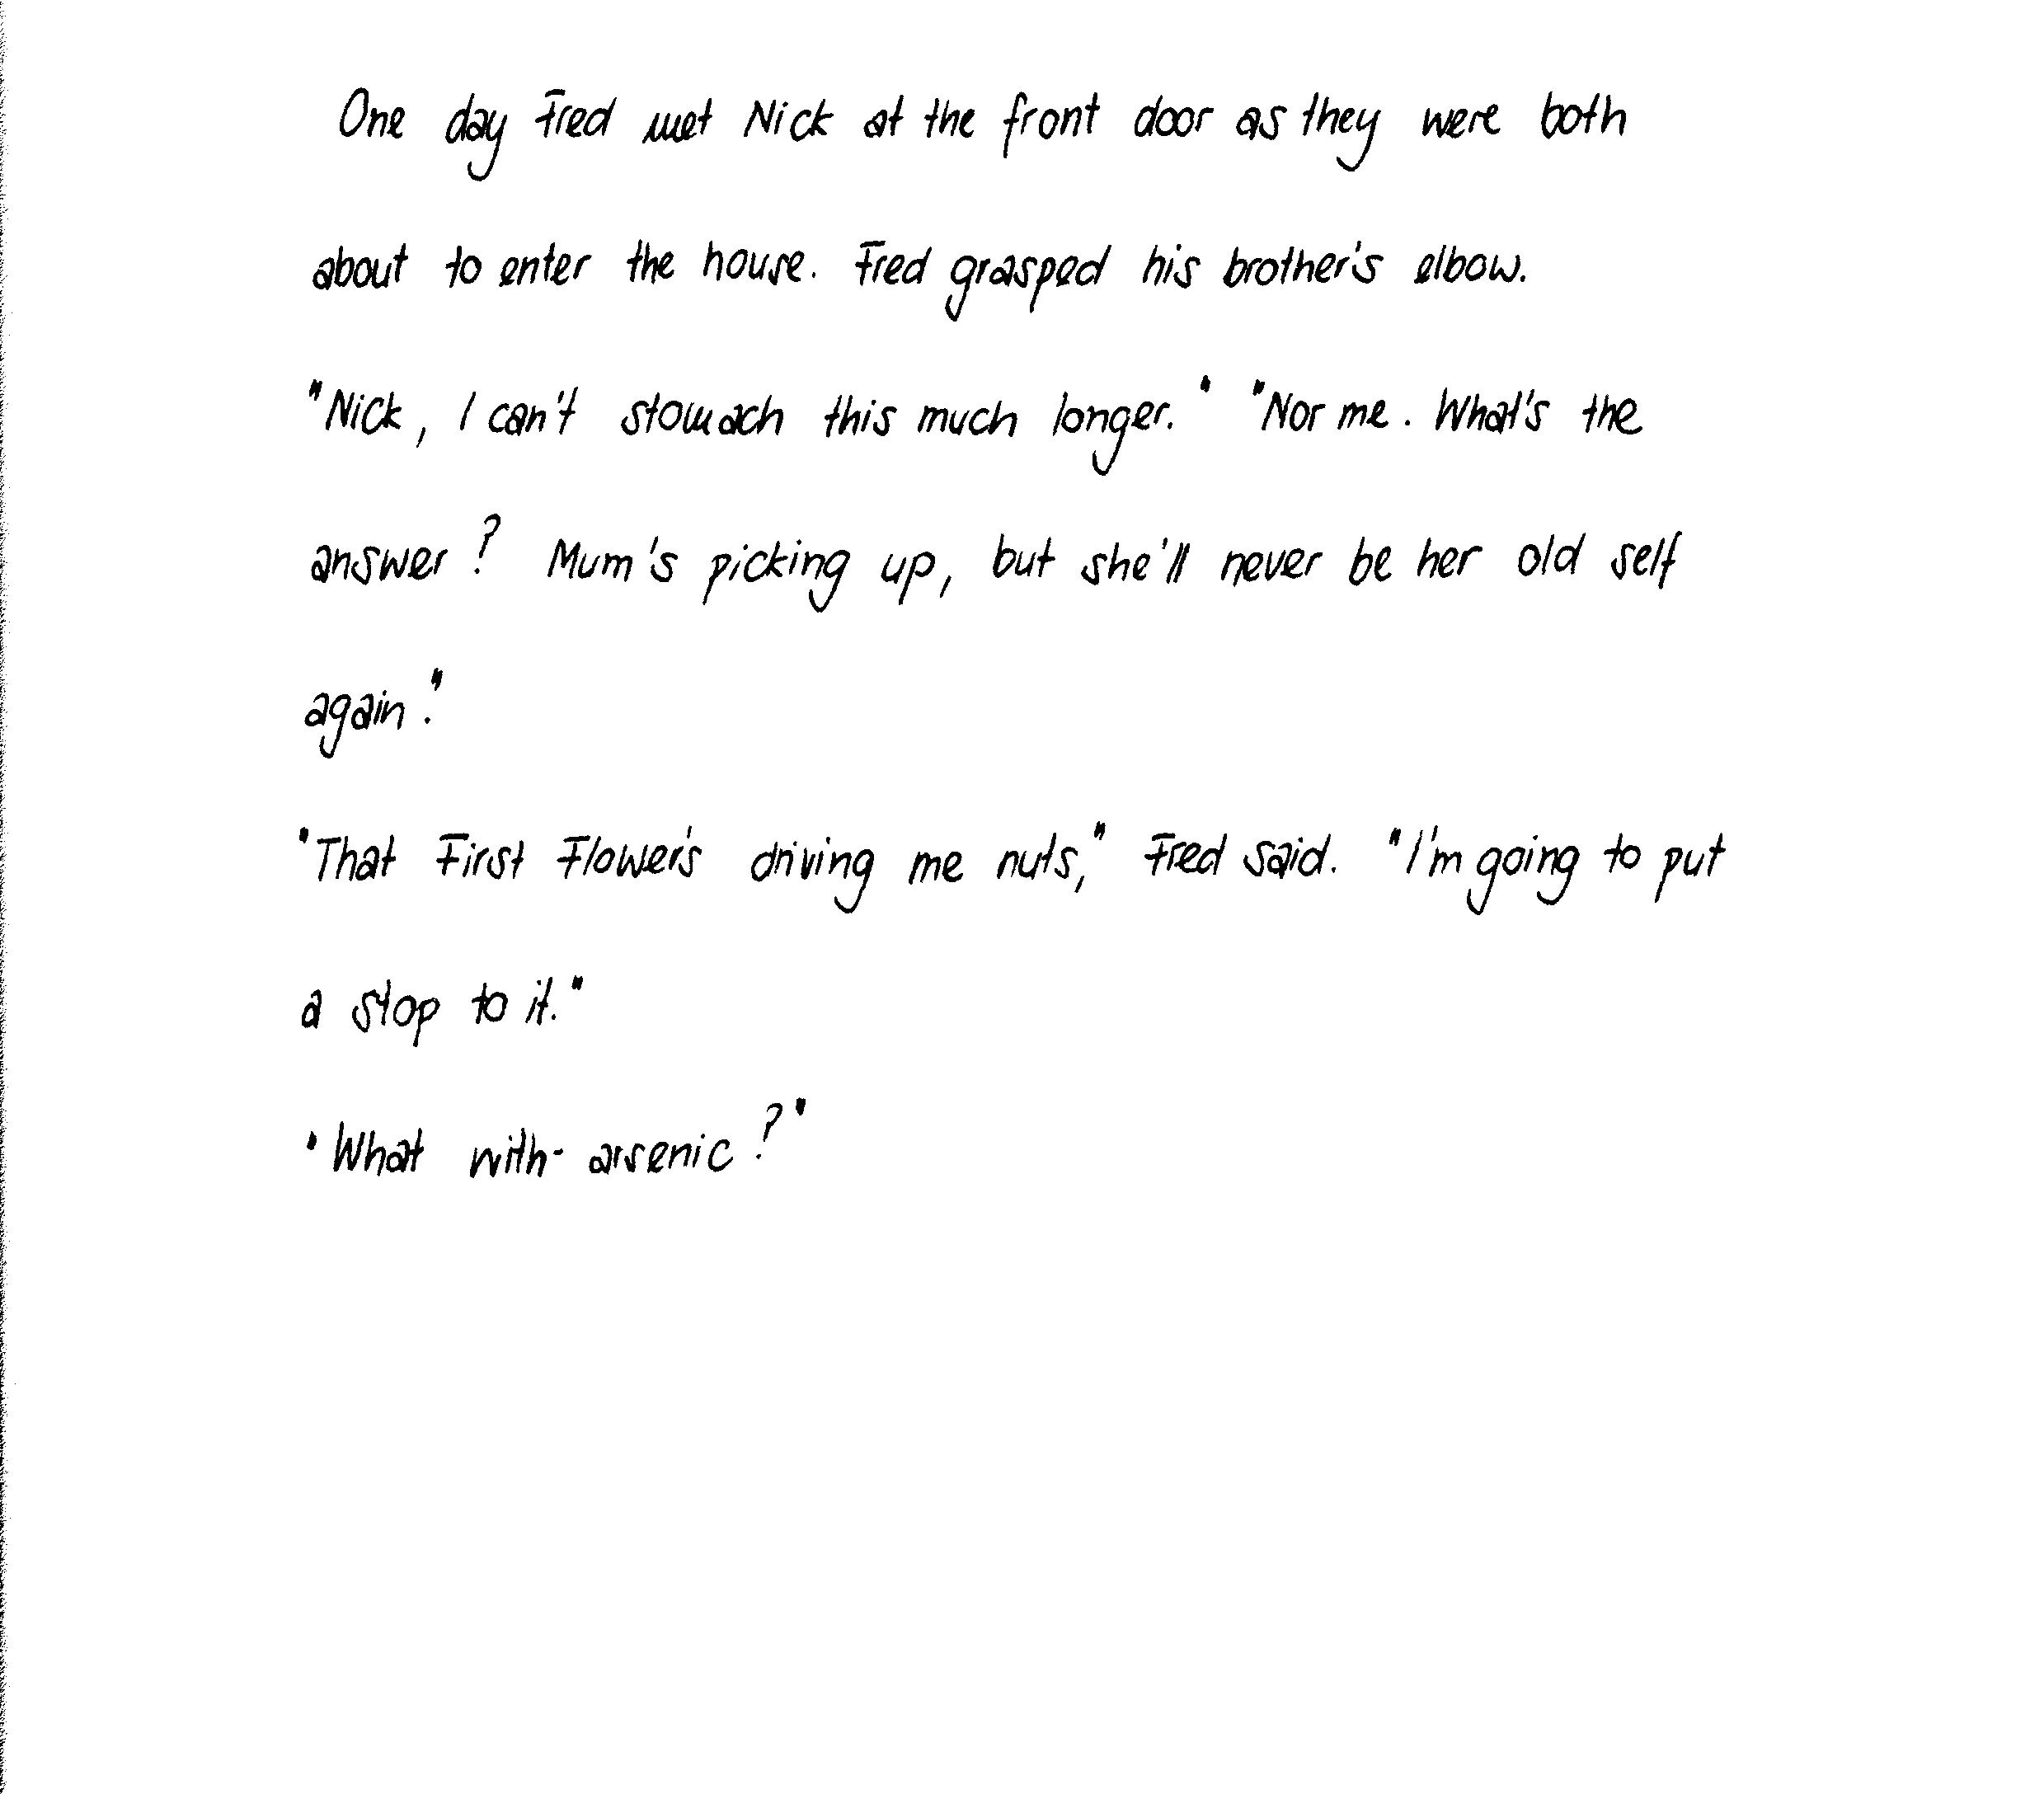 One day Fred met Nick at the front door as they were both
about to enter the house. Fred grasped his brother's elbow.
"Nick, I can't stomach this much longer." "Nor me. What's the
answer? Mum's picking up, but she'll never be her old self
again."
"That First Flower's driving me nuts," Fred said. "I'm going to put
a stop to it."
"What with - arsenic?"